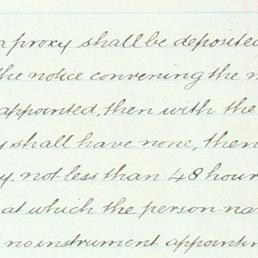 a proxy shall be deposited
the notice convening the m
appointed, then with the
y shall have none, then
y. not less than 48 hour
at which the person na
no instrument appointin